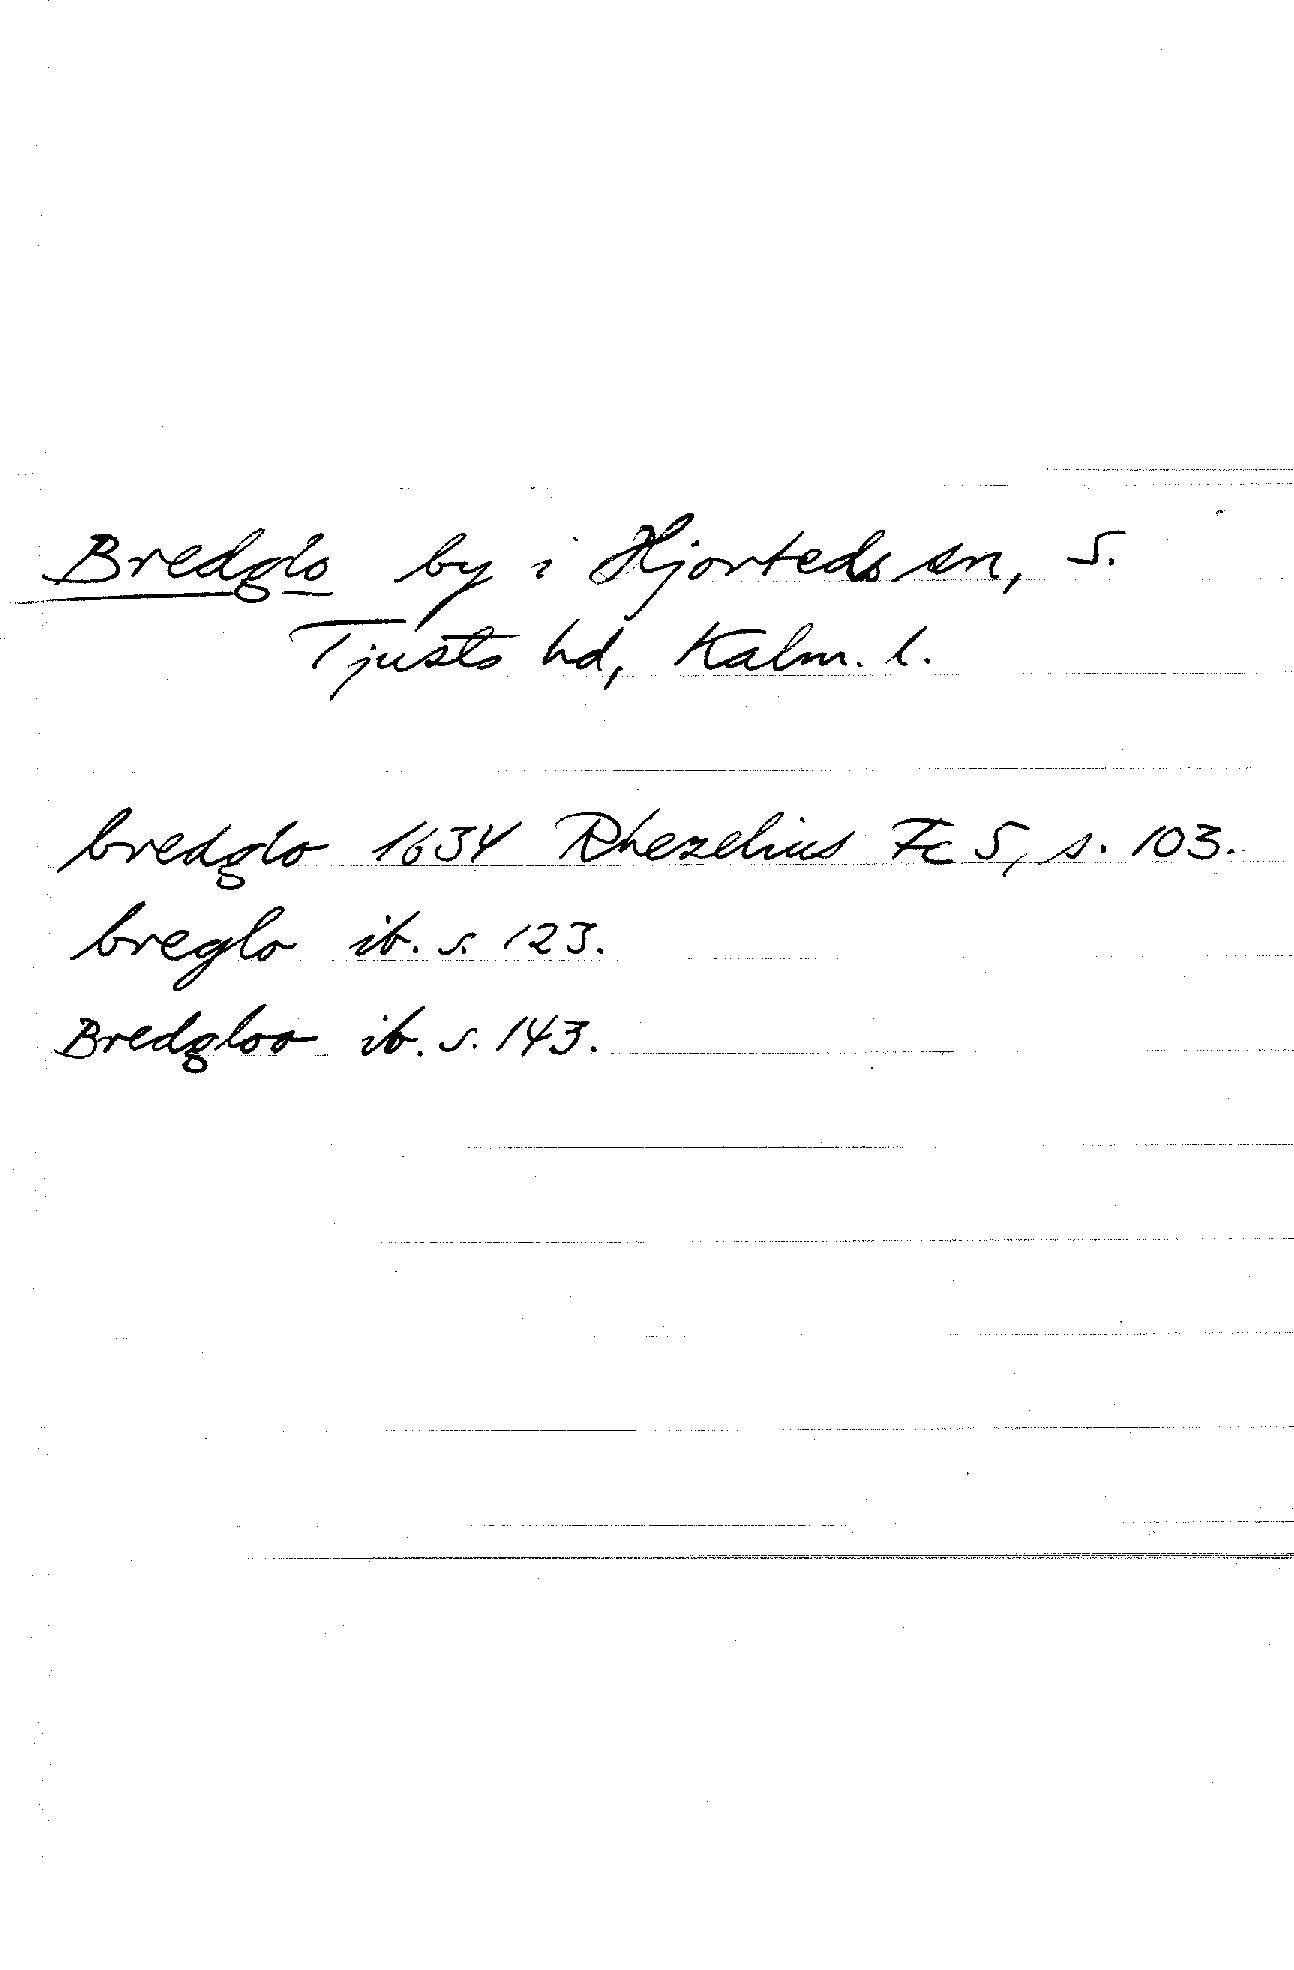 Bredglo by i Hjorteds sn, S.
Tjusts hd, Kalm. l.
bredglo 1634 Rhezelius Fc 5, s. 103.
breglo ib. s. 123.
Bredgloo ib. s. 143.